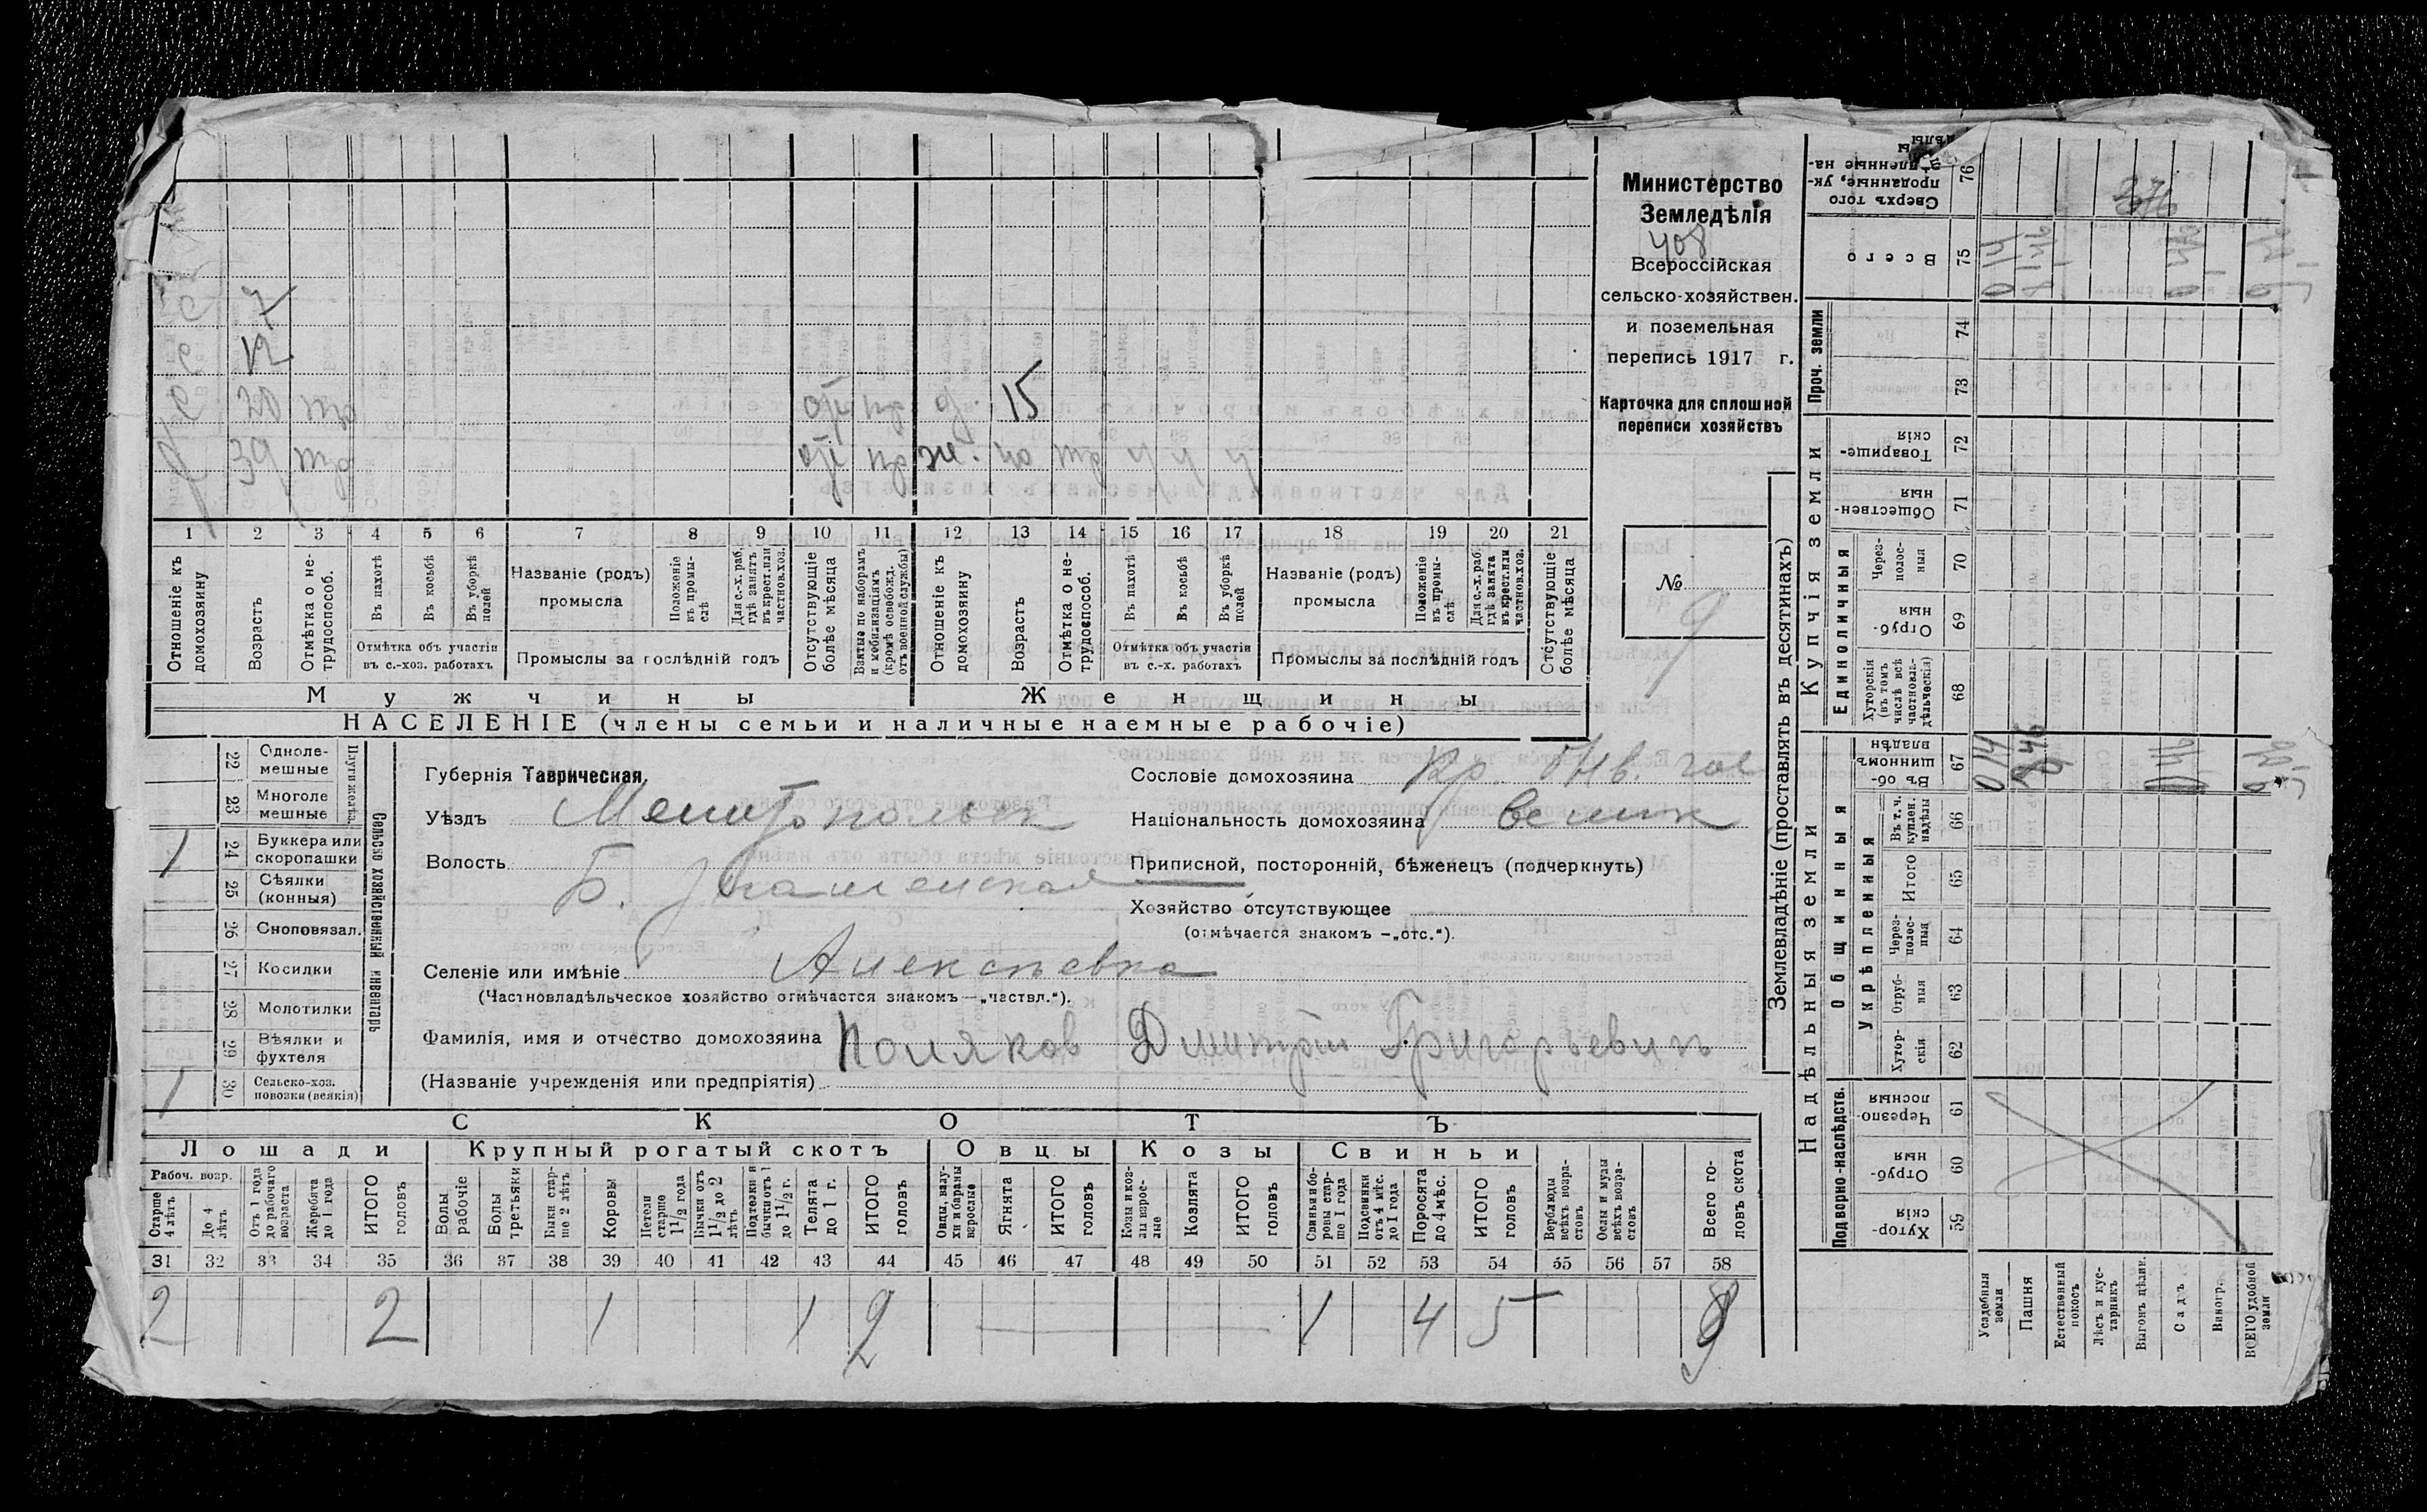 Министерство
Земледѣлія
408
Всероссійская
сельско-хозяйствен.
и поземельная
перепись 1917 г.
Карточка для сплошной
переписи хозяйствъ
№
9
7
12
20
15
39
40
1 2 3 4 5 6 7 8 9 10 11 12 13 14 15 16 17 18 19 20 21
Отношеніе къ домохозяину
Возрастъ
Отмѣтка о не-трудоспособ.
Въ пахотѣ
Въ косьбѣ
Въ уборкѣ полей
Отмѣтка объ участіи въ с.-хоз. работахъ
Названіе (родъ) промысла
Положеніе въ промы-слѣ
Для с.-х. раб. гдѣ занятъ въ крест. или частнов. хоз.
Промыслы за послѣдній годъ
Отсутствующіе болѣе мѣсяца
Взятые по наборамъ и мобилизаціямъ (кромѣ освобожд. отъ военной службы)
Отношеніе къ домохозяину
Возрастъ
Отмѣтка о не-трудоспособ.
Въ пахотѣ
Въ косьбѣ
Въ уборкѣ полей
Отмѣтка объ участіи въ с.-х. работахъ
Названіе (родъ) промысла
Положеніе въ промы-слѣ
Для с.-х. раб. гдѣ занята въ крест. или частнов. хоз.
Промыслы за послѣдній годъ
Отсутствующіе болѣе мѣсяца
Мужчины Женщины
НАСЕЛЕНІЕ (члены семьи и наличные наемные рабочіе)
Сельско хозяйственный инвентарь
Плуги желѣз.
22 Одноле-мешные
23 Многоле мешные
1 24 Буккера или скоропашки
25 Сѣялки (конныя)
26 Сноповязал.
27 Косилки
28 Молотилки
29 Вѣялки и фухтеля
1 30 Сельско-хоз. повозки (всякія)
Губернія Таврическая.
Уѣздъ Мелитопольск
Волость Б. Утлюгская
Селеніе или имѣніе Алексѣевка
(Частновладѣльческое хозяйство отмѣчается знакомъ—„частвл.“).
Фамилія, имя и отчество домохозяина Поляков Дмитрій Григорьевич
(Названіе учрежденія или предпріятія)
Сословіе домохозяина Кр.
Національность домохозяина велик
Приписной, посторонній, бѣженецъ (подчеркнуть)
Хозяйство отсутствующее
(отмѣчается знакомъ –„отс.“).
СКОТЪ
Лошади Крупный рогатый скотъ Овцы Козы Свиньи
Рабоч. возр.
Старше 4 лѣтъ
До 4 лѣтъ
Отъ 1 года до рабочаго возраста
Жеребята до 1 года
ИТОГО головъ
Волы рабочіе
Волы третьяки
Быки стар-ше 2 лѣтъ
Коровы
Нетели старше 1 1/2 года
Бычки отъ 1 1/2 до 2 лѣтъ
Подтелки и бычки отъ 1 до 1 1/2 г.
Телята до 1 г.
ИТОГО головъ
Овцы, валу-хи и бараны взрослые
Ягнята
ИТОГО головъ
Козы и коз-лы взрос-лые
Козлята
ИТОГО головъ
Свиньи и бо-ровы стар-ше 1 года
Подсвинки отъ 4 мѣс. до 1 года
Поросята до 4 мѣс.
ИТОГО головъ
Верблюды всѣхъ возра-стовъ
Ослы и мулы всѣхъ возра-стовъ
Всего го-ловъ скота
31 32 33 34 35 36 37 38 39 40 41 42 43 44 45 46 47 48 49 50 51 52 53 54 55 56 57 58
2 2 1 1 2 1 4 5 9
Землевладѣніе (проставлять въ десятинахъ)
Надѣльныя земли Купчія земли
Подворно-наслѣдств.
Общинныя
Укрѣпленныя
Единоличныя
Проч. земли
Сверхъ того проданные, ук-
76
Всего 75
74
73
Товарище-скія 72
Обществен-ныя 71
Через-полос-ныя 70
Отруб-ныя 69
Хуторскія (въ томъ числѣ всѣ частновла-дѣльческія) 68
Въ об-щинномъ владѣн 67
Въ т. ч. куплен. надѣлы 66
Итого 65
Через-полос-ныя 64
Отруб-ныя 63
Хутор-скія 62
Черезпо-лосныя 61
Отруб-ныя 60
Хутор-скія 59
Усадебныя земли
Пашня
Естественный покосъ
Лѣсъ и кус-тарникъ
Выгонъ цѣлин.
Садъ
Виногр.
ВСЕГО удобной земли